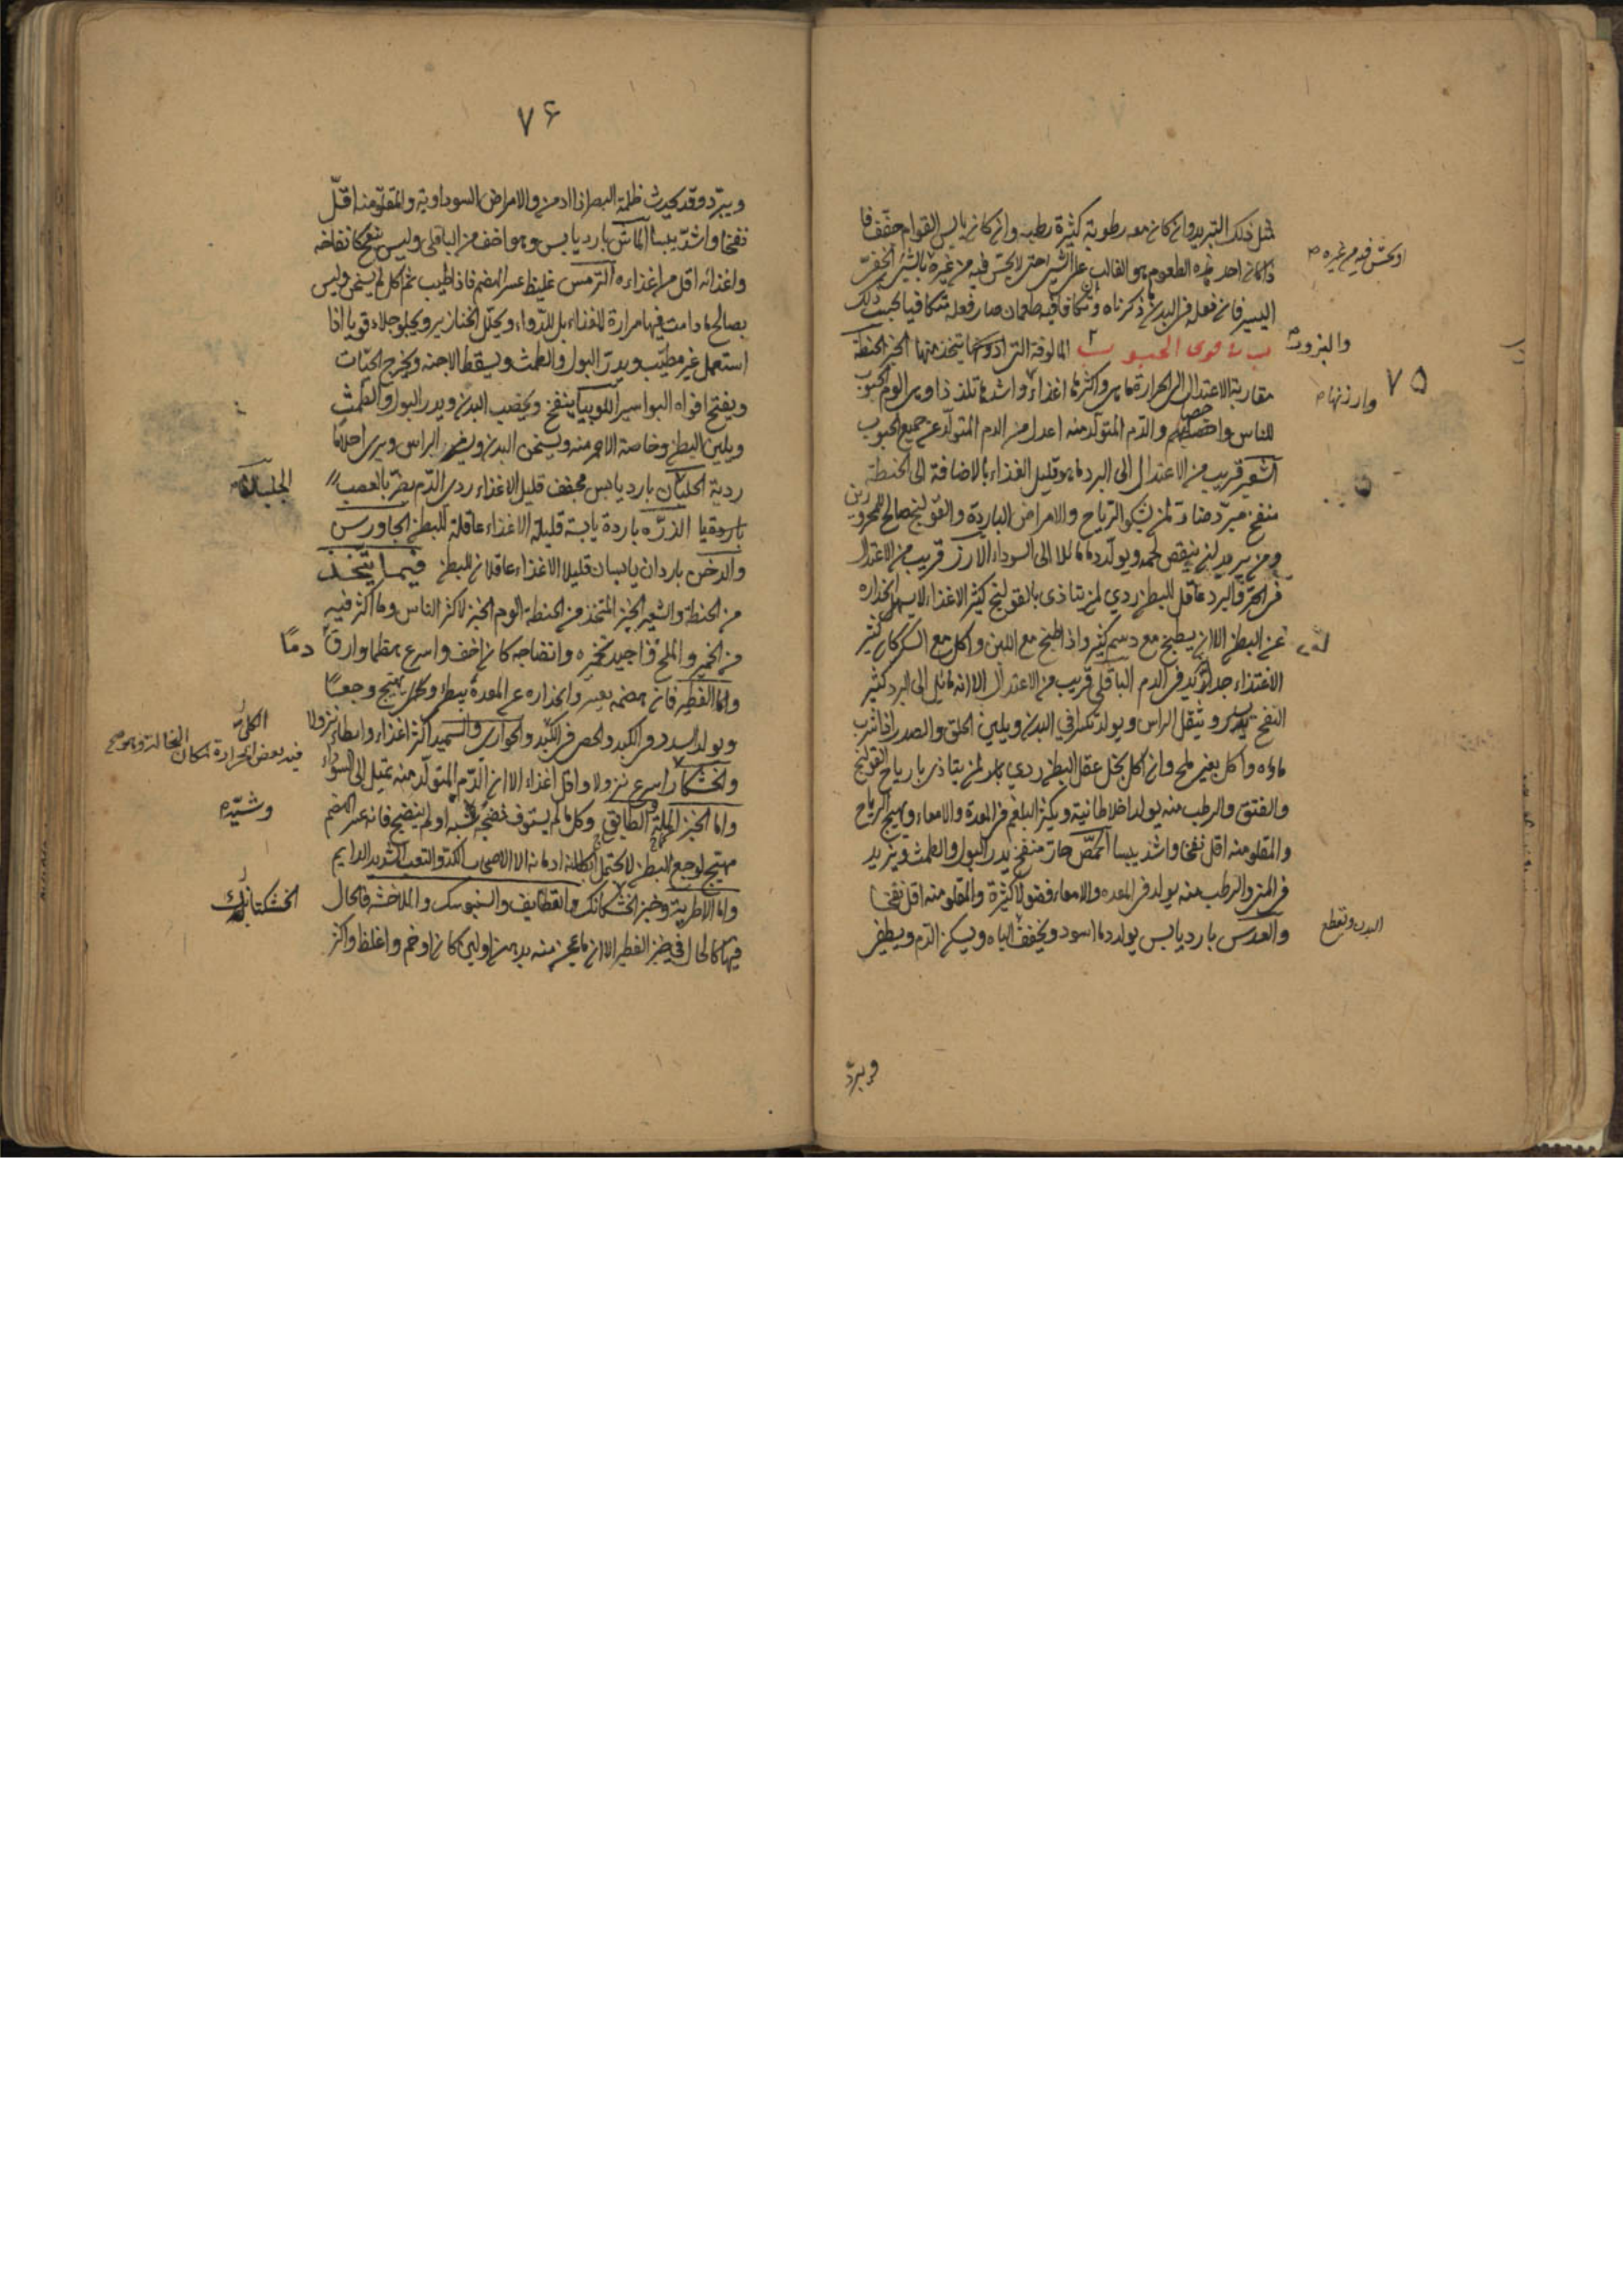 ٧٥
مثل ذلك التبريد وان كان معه رطوبة كثيرة رطبه وان كان يابس القوام جفّف فا
ذا كان احد هذه الطعوم هو الغالب على الشئ حتى لا يحسّ فيه من غيره بالشئ الخفىّ
او يحسّ فيه من غيره
اليسير فان فعله فى البدن ما ذكرناه وان تكافا فيه طعمان صار فعله متكافيا بحسب ذلك
باب فى قوى الحبوب المالوفة التى يتخذ منها الخبز الحنطة
والبزور
مقاربة الاعتدال الى الحرارة ما هى واكثرها اغذاء واشدها تلذذا وهى الوم الحبوب
وارزنها
للناس واخصها بهم والدم المتولد منه اعدل من الدم المتولد عن جميع الحبوب
الشعير قريب من الاعتدال الى البرد ما هو قليل الغذاء بالاضافة الى الحنطة
منفخ مبرّد ضار لمن يشكو الرياح والامراض الباردة والقولنج صالح للمحرورين
ومن يريد ان ينقص لحمه ويولد دما مائلا الى السوداء الارز قريب من الاعتدال
فى الحرّ والبرد عاقل للبطن ردي لمن يتاذى بالقولنج كثير الاغذاء لا يسهل انحداره
عن البطن الا ان يطبخ مع دسم كثير واذا طبخ مع اللبن واكل مع السكر كان كثير
الاغتذاء جدا يزيد فى الدم الباقلى قريب من الاعتدال الا انه مائل الى البرد كثير
النفخ يثقل الراس ويولد تكسرا في البدن ويلين الحلق والصدر اذا شرب
ماؤه واكل بغير ملح وان اكل بخل عقل البطن ردي لمن يتاذى بارياح القولنج
والفتق والرطب منه يولد اخلاطا نيّة ويكثر البلغم فى المعدة والامعاء ويهيج الرياح
والمقلو منه اقل نفخا واشد يبسا الحمّص حار منفخ يدر البول والطمث ويزيد
فى المنى والرطب منه يولد فى المعده والامعاء فضولا كثيرة والمقلو منه اقل نفخا
والعدس بارد يابس يولد دما اسود ويجفف الباه ويسكن الدم ويطفى
البدن ويقطع
ويبرّد
٧۶
ويبرّد وقد يحدث ظلمة البصر اذا ادمن والامراض السوداوية والمقلو منه اقلّ
نفخا واشدّ يبسا الماش بارد يابس وهو اخف من الباقلى وليس نفخه كانفاخه
واغذائه اقل من اغذاءه الترمس غليظ عسر الهضم فاذا طيب ثم اكل لم يسخن وليس
بصالح ما دامت فيها مرارة للغذاء بل للدواء ويحلل الخنازير ويجلو جلاء قويا اذا
استعمل غير مطيّب ويدرّ البول والطمث ويسقط الاجنه ويخرج الحيّات
ويفتح افواه البواسير اللوبيا ينفخ ويخصب البدن ويدر البول والطمث
ويلين البطن وخاصة الاحمر منه ويسخن البدن ويضر الراس ويرى احلاما
ردية الجلبان بارد يابس مجفف قليل الاغذاء ردى الدّم يضرّ بالعصب
الجلبان
الذرّه باردة يابسة قليلة الاغذاء عاقلة للبطن الجاورس
والدخن باردان يابسان قليلا الاغذاء عاقلان للبطن فيما يتخذ
من الحنطة والشعير الخبز المتخذ من الحنطة الوم الخبز لاكثر الناس وما اكثر فيه
من الخمير والملح واجيد تخميره وانضاجه كان اخف واسرع هضما وارقّ دمًا
واما الفطير فانه هضمه يعسر وانحداره عن المعدة يبطئ وكله يهيج وجعًا
ويولد السدد فى الكبد والحصى فى الكلى والحوارى والسميد اكثر اغذاء وابطاء نزولا
الكلى
والخشكار اسرع نزولا واقل اغذاء الا ان الدّم المتولد منه يميل الى السوداء
واما الخبز الملة والطابق وكل ما لم يستوف نضجه او لم ينضج فانه عسر الهضم
وشيّه
مهيج لوجع البطن لا يحتمل ادمانه الا الاصحاب الكد والتعب الشديد الدايم
واما الاطرية وخبز الخشكنانك والقطايف والسنبوسك فالحال
الخشكنانك
فيها كالحال في خبز الفطير الا ان ما عجن منه بدهن او لبن كان اوخم واغلظ واكثر